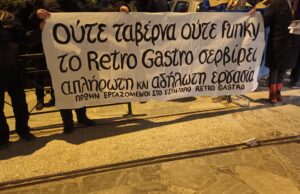 ΟΥΤΕ ΤαβέρΝα ΟΥΤΕ FuNky
το Retro Gastro σερβίρει
απλήρωτη και αδήλωτη εργασία
ΠΡΩΗΝ ΕΡΓΑΖΟΜΕΝΟΙ ΣΤΟ ΕΣΤΙΑΤΟΡΙΟ RETRO GASTRO